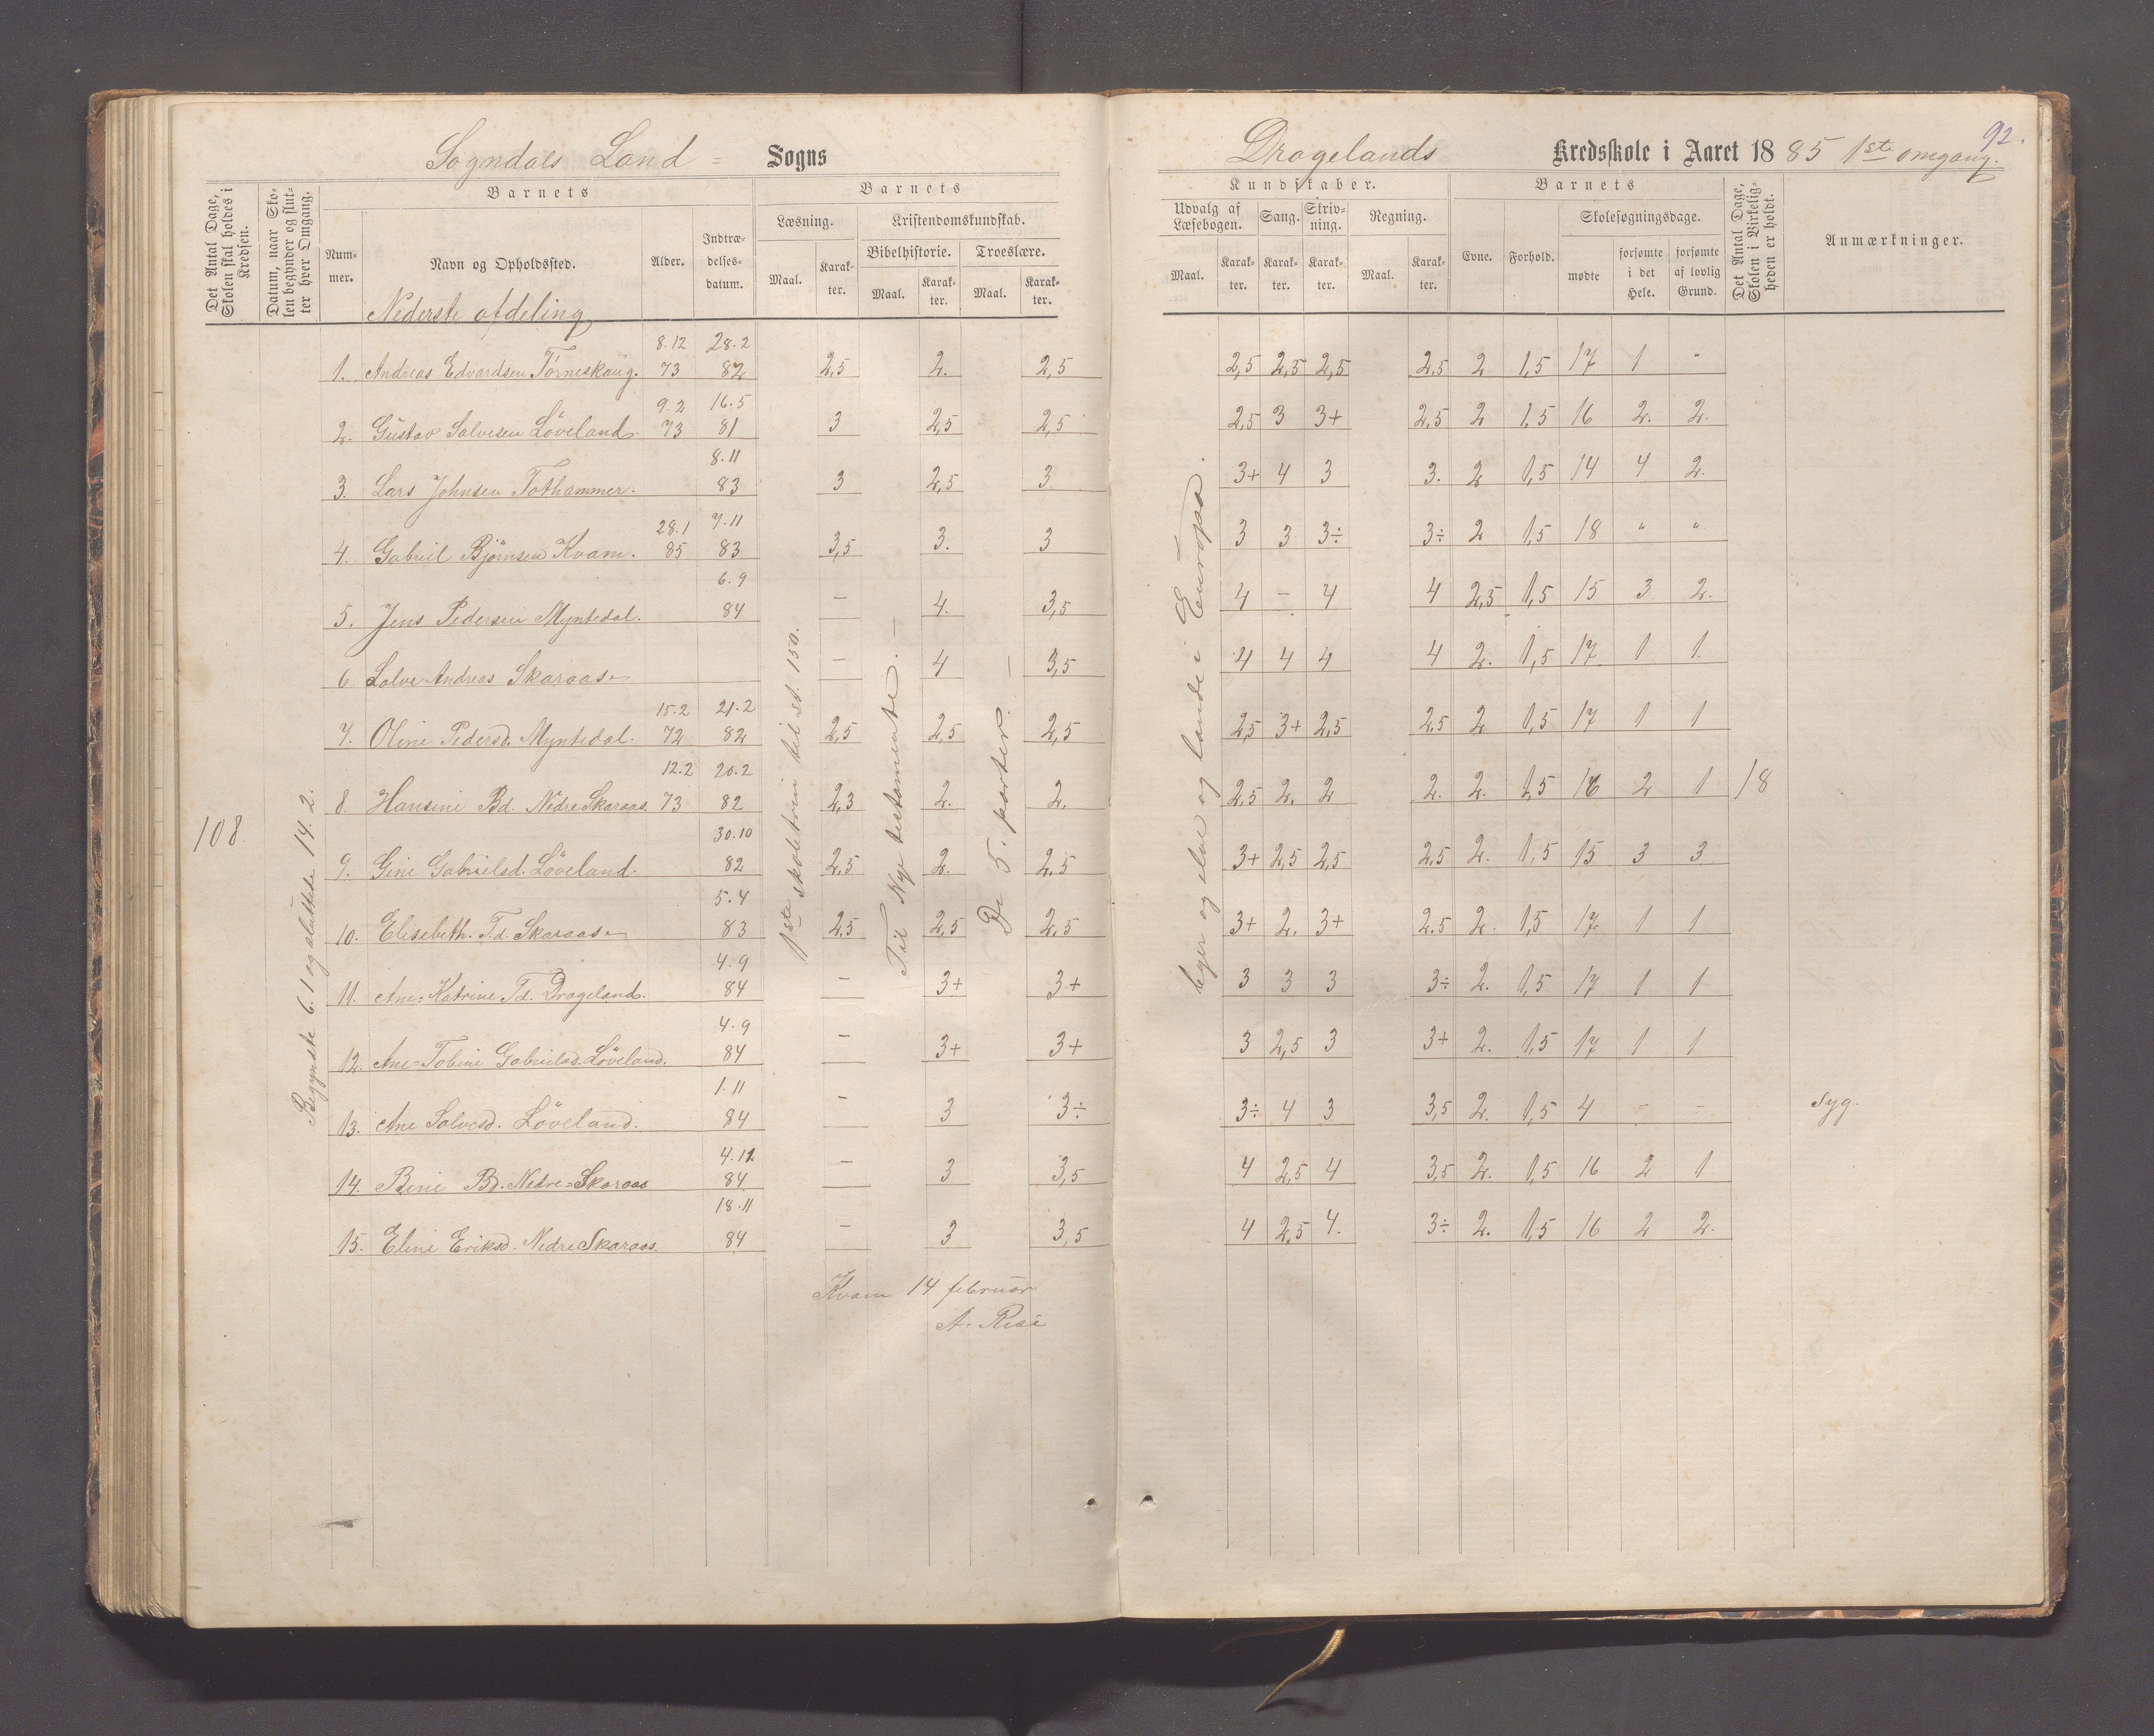 Sogndals Land = Sogns
Dragelands Kredsskole i Aaret 1885 1ste omgang.
92.
Det Antal Dage, Skolen skal holdes i Kredsen.
Datum, naar Skolen begynder og slutter hver Omgang.
Barnets
Nummer.
Navn og Opholdssted.
Alder.
Indtrædelsesdatum.
Barnets
Læsning.
Maal.
Karakter.
Kristendomskundskab.
Bibelhistorie.
Maal.
Karakter.
Troeslære.
Maal.
Karakter.
Kundskaber.
Udvalg af Læsebogen.
Maal.
Karakter.
Sang.
Karakter.
Skrivning.
Karakter.
Regning.
Maal.
Karakter.
Barnets
Evne.
Forhold.
Skolesøgningsdage.
mødte
forsømte i det Hele.
forsømte af lovlig Grund.
Det Antal Dage, Skolen i Virkeligheden er holdt.
Anmærkninger.
Nederste afdeling
108.
Begyndte 6.1 og sluttede 14.2.
1ste skoletrin til st. 150.
Til Nye testamente. —
De 5. parter. —
byer og elve og lande i Europa.
18
1. Andreas Edvardsen Törneskoug. 8.12 73 28.2 82 2,5 2. 2,5 2,5 2,5 2,5 2,5 2 1,5 17 1 "
2. Gustav Salvesen Löveland. 9.2 73 16.5 81 3 2,5 2,5 2,5 3 3+ 2,5 2 1,5 16 2. 2.
3. Lars Johnsen Tothammer. 8.11 83 3 2,5 3 3+ 4 3 3. 2 1,5 14 4 2.
4. Gabriel Bjørnsen Kvam. 28.1 85 7.11 83 3,5 3. 3 3 3 3÷ 3÷ 2 1,5 18 " "
5. Jens Pedersen Myntedal. 6.9 84 — 4. 3,5 4 – 4 4 2,5 1,5 15 3 2.
6. Salve Andreas Skaraas. — 4 3,5 4 4 4 4 2. 1,5 17 1 1.
7. Oline Pedersd. Myntedal. 15.2 72 21.2 82 2,5 2,5 2,5 2,5 3+ 2,5 2,5 2 1,5 17 1 1
8. Hansine Bd. Nedre Skaraas. 12.2 73 20.2 82 2,3 2. 2. 2,5 2. 2 2. 2. 1,5 16 2 1
9. Gine Gabrielsd. Löveland. 30.10 82 2,5 2. 2,5 3+ 2,5 2,5 2,5 2. 1,5 15 3 3
10. Elisebeth. Td. Skaraas. 5.4 83 2,5 2,5 2,5 3+ 2. 3+ 2,5 2. 1,5 17 1 1
11. Ane=Katrine Td. Drageland. 4.9 84 — 3+ 3+ 3 3 3 3÷ 2. 1,5 17 1 1
12. Ane=Tobine Gabrielsd. Löveland. 4.9 84 — 3+ 3+ 3 2,5 3 3+ 2. 1,5 17 1 1
13. Ane Salvesd. Löveland. 1.11 84 — 3 3÷ 3÷ 4 3 3,5 2. 1,5 4 – – syg.
14. Bine Bd. Nedre=Skaraas 4.11. 84 — 3 3,5 4 2,5 4 3,5 2. 1,5 16 2 1
15. Eline Eriksd. Nedre Skaraas. 18.11 84 — 3 3,5 4 2,5 4. 3÷ 2. 1,5 16 2 2.
Kvam 14 februar
A. Risé